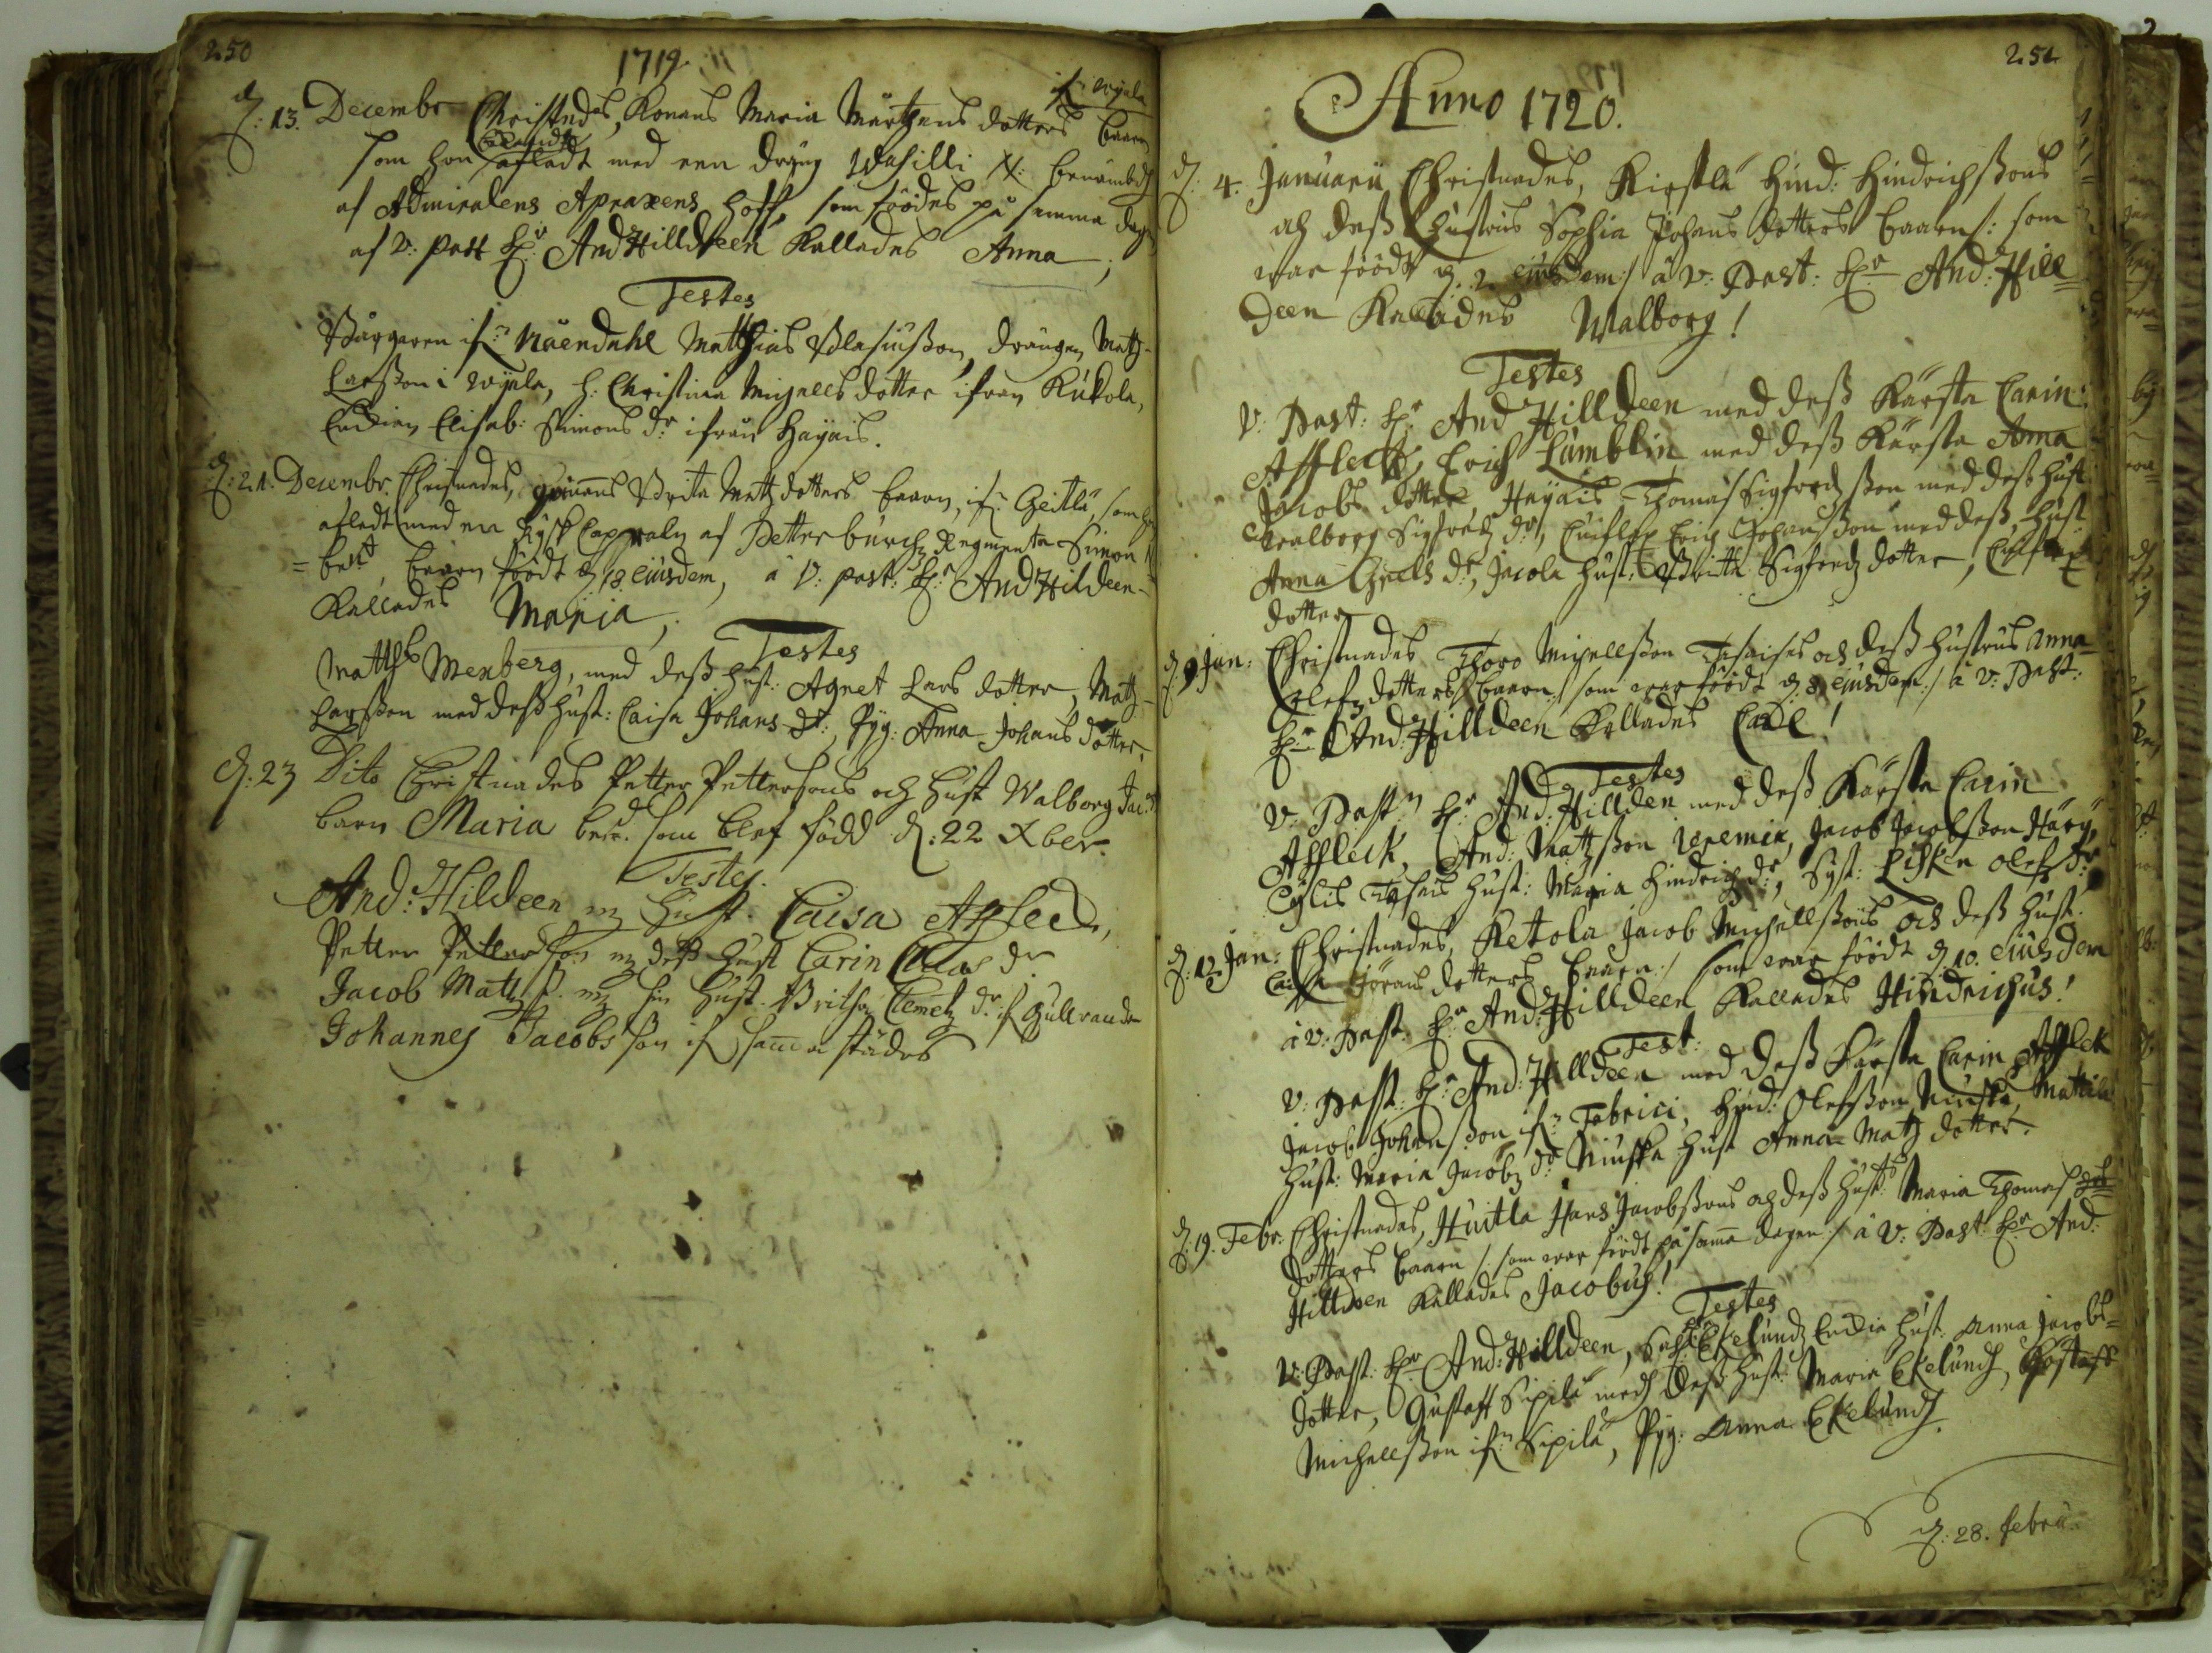 250
1719
if: Wijala
d: 13. Decembr Christnades, Konans Maria Mårthens dotters baarn
som hon afladt med een dräng Wasilli N: benämbdh
af Admiralens Apraxens hoff, som föddes på samma dagh
af V: Past H:r And Hilldeen kallades Anna;
Testes
Borgaren if:n Nåendahl Matthias Blasiusson, drängen Matz
Larsson i Wijala, H: Christina Michells dotter ifrån Kukola,
Enckian Elisab: Simons d:r ifrån Hayais.
d: 21. Decembr. Christnades, qvinnans Brita Matz dotters baarn, if: Heitlä, som hon
afladt med en Rysk Capraln af Petterburchz Regemente Simon N
be:d, baarn föödt d 18 Eiusdem, à V: past: H:r And Hildeen
kallades Maria;
Testes
Matths Menberg, med dess hust: Agnet Lars dotter, Matz
Larsson med dess hust: Caisa Johans d:r, Pyg: Anna Johans dotter
d: 23 Dito Christnades Petter Pettersons och Hust Walborg Jac: d
barn Maria be:d. som blef född d: 22 Xber.
Testes.
And: Hildeen mz Hust. Caisa Afflec,
Petter Petterson mz dess Hust Carin Clas dr
Jacob Matz ß. mz sin Hust. Britha Clemetz dr. if Gullranda
Johannes Jacobsson if samma städes
251
Anno 1720.
d: 4. Januarii Christnades, Kirstlä Hind: Hindrichssons
och dess hustrus Sophia Johans dotters baarn /: som
war föödt d. 2 Eiusdem :/ à V: Past: H:r And: Hill
deen Kallades Walborg!
Testes
V: Past: H:r And Hilldeen med dess Kärsta Carin
Affleck, Erich Lamblin med dess Kärsta Anna
Jacobs dotter, Hayais Thomas Sigfredz son med dess hust
Walborg Sigfredz d:r, Erich Johansson med dess hust:
Anna Chnels d:r, Jacola hust: Britta Sigfredz dotter,
dotter
d: 9 Jan: Christnades Thoro Michellsson och dess hustrus Anna
Olefz dotters baarn /: som war föödt d. 8 Eiusdem :/ à V: Past:
H:r And: Hilldeen Kallades Carl!
Testes
V: Past:n H:r And: Hillden med dess Kärsta Carin
Affleck, And: Matzson Jeremia, Jacob Jacobsson
hust: Maria Hindrich d:r, Lissken Olefz d:r
d: 12 Jan: Christnades, Ketola Jacob Michellssons och dess hust
Jörans dotters baarn /: som war föödt d 10. Eiusdem
à V: Past: H:r And: Hilldeen Kallades Hindrichus!
Test:
V: Past: H:r And: Hilldeen med dess Kärsta Carin Afflek
Jacob Johansson if:n Fabrici, Hind: Olefsson Niuska, Mattila
hust: Maria Jacobz d:r Niuska hust Anna Matz dotter.
d: 19. Febr: Christnades, Huitla Hans Jacobssons och dess hust: Maria Thomas
dotters baarn /: som war föödt på samma dagen :/ à V: Past: H:r And:
Hilldeen Kallades Jacobus!
Testes
V: Past: H:r And: Hilldeen, Ekelundz Enckia hust: Anna Jacobs
dotter, Gustaff Sipilä medh dess hust: Maria Ekelundh, Gustaff
Michellsson if:n Sipilä, Pyg: Anna Ekelundh.
d: 28. Febru: